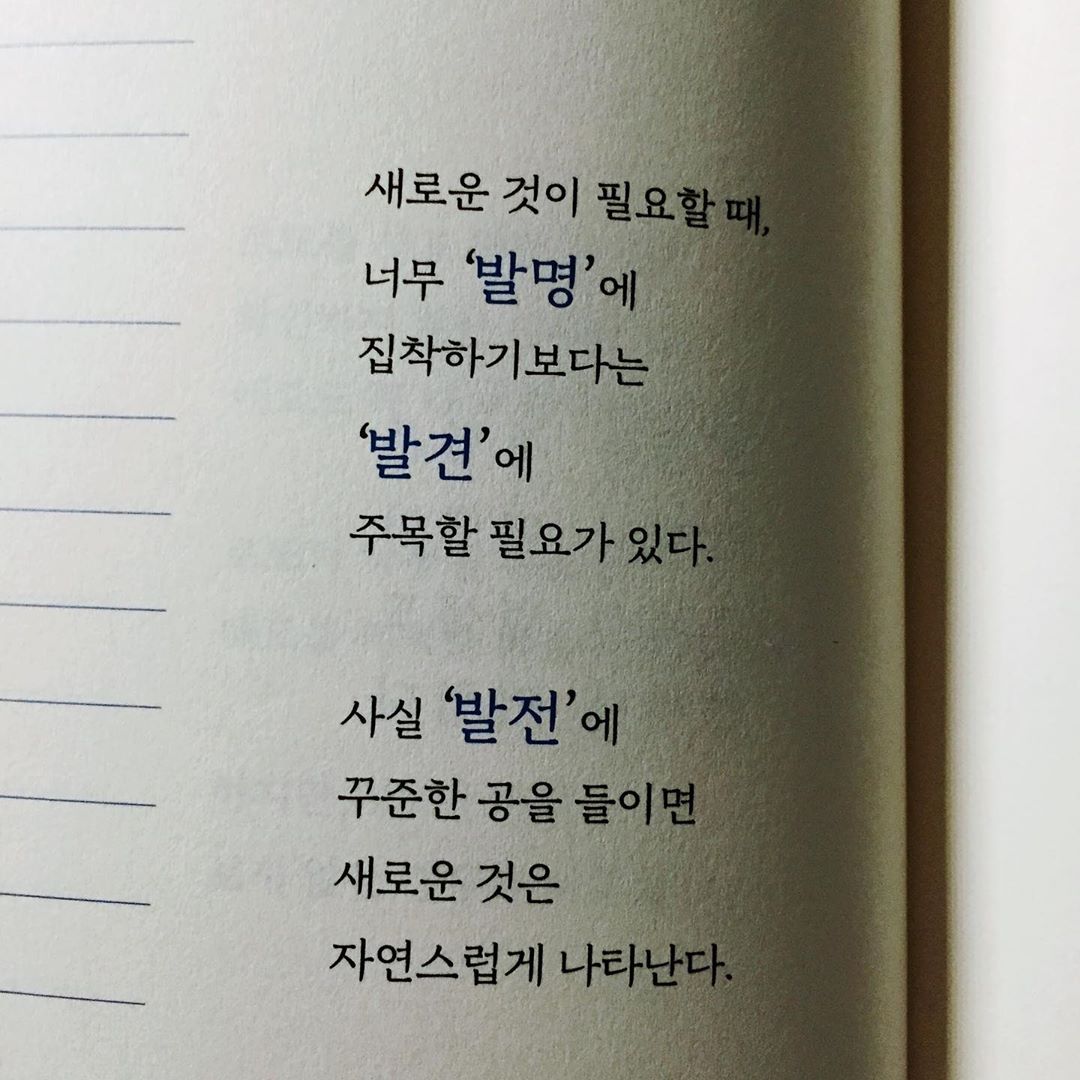 새로운 것이 필요할 때,
너무 ‘발명’에
집착하기보다는
‘발견’에
주목할 필요가 있다.
사실 ‘발전’에
꾸준한 공을 들이면
새로운 것은
자연스럽게 나타난다.